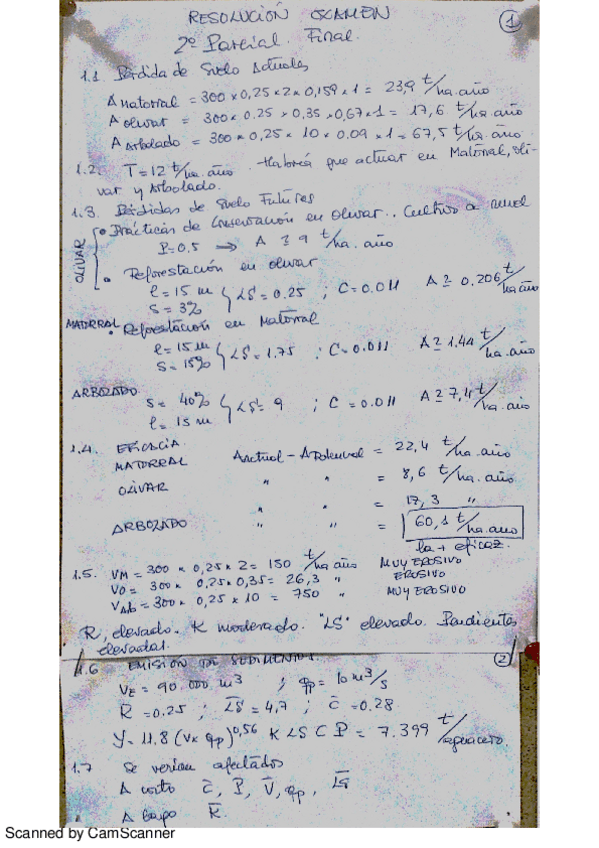 RESOLUCIÓN EXAMEN
1
2º Parcial. Final.
1.1 Pérdida de Suelo Actuales
A Matorral = 300 x 0,25 x 2 x 0,159 x 1 = 23,9 t/ha.año
A olivar = 300 x 0.25 x 0,35 x 0,67 x 1 = 17,6 t/ha.año
A Arbolado = 300 x 0,25 x 10 x 0.09 x 1 = 67,5 t/ha.año
1.2. T = 12 t/ha.año. Habría que actuar en Matorral, oli-
var y Arbolado.
1.3. Pérdidas de Suelo Futuras
OLIVAR
• Prácticas de Conservación en olivar.. Cultivo a nivel
P = 0,5 → A ≥ 9 t/ha.año
• Reforestación en olivar
l = 15 m
s = 3%
LS = 0.25 ; C = 0.011 A ≥ 0,206 t/ha año
MATORRAL • Reforestación en Matorral
l = 15 m
s = 15%
LS = 1.75 ; C = 0.011 A ≥ 1,44 t/ha.año
ARBOLADO
s = 40%
l = 15 m
LS = 9 ; C = 0.011 A ≥ 7,4 t/ha.año
1.4. EFICACIA
MATORRAL Aactual - Apotencial = 22,4 t/ha.año
OLIVAR " " = 8,6 t/ha.año
" " = 17,3 "
ARBOZADO " " = 60,1 t/ha.año
la + eficaz.
1.5. VM = 300 x 0,25 x 2 = 150 t/ha año MUY EROSIVO
VO = 300 x 0,25 x 0,35 = 26,3 " EROSIVO
VAb = 300 x 0,25 x 10 = 750 " MUY EROSIVO
R, elevado. K moderado. "LS" elevado. Pendientes
elevadas.
2
1.6 EMISIÓN DE SEDIMENTOS.
VE = 90.000 m3 ; qp = 10 m3/s
K = 0.25 ; LS = 4,7 ; C = 0.28
Y = 11.8 (V x qp)0,56 K LS C P = 7.399 t/aguacero
1.7 Se verían afectados
A corto C, P, V, qp, LS
A largo K.
Scanned by CamScanner